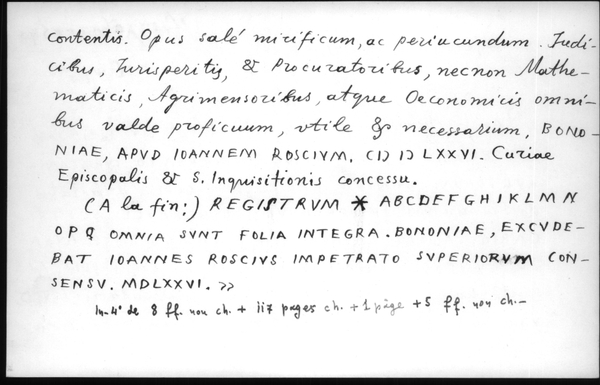 contentis. Opus salé mirificum, ac periucundum. Iudi-
cibus, Iurisperitis, & Procuratoribus, necnon Mathe-
maticis, Agrimensoribus, atque Oeconomicis omni-
bus valde proficuum, vtile & necessarium, BONO-
NIAE, APVD IOANNEM ROSCIVM. CIↃ IↃ LXXVI. Curiae
Episcopalis & S. Inquisitionis concessu.
(A la fin:) REGISTRVM * ABCDEFGHIKLMN
OPQ OMNIA SVNT FOLIA INTEGRA. BONONIAE, EXCVDE-
BAT IOANNES ROSCIVS IMPETRATO SVPERIORVM CON-
SENSV. MDLXXVI. >>
In-4° de 8 ff. non ch. + 117 pages ch. + 1 page + 5 ff. non ch.-